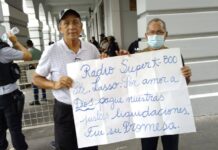 Radio Super K 800
Sr. Lasso: Por amor a
Dios pague nuestras
justas liquidaciones,
Fue su Promesa.